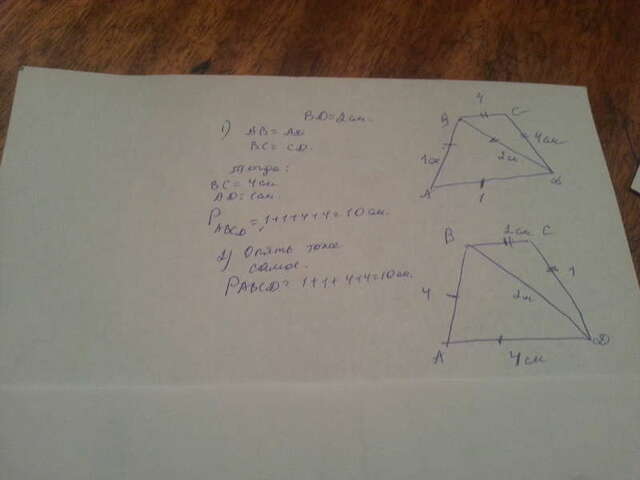 BD = 2 см.
1) AB = AD
BC = CD.
тогда:
BC = 4 см
AD = 1 см.
P ABCD = 1+1+4+4=10 см.
2) Опять тоже
самое.
P ABCD = 1+1+4+4=10 см.
4
B
C
4 см
2 см
1 см
A
1
D
2 см
B
C
1
4
2 см
A
4 см
D